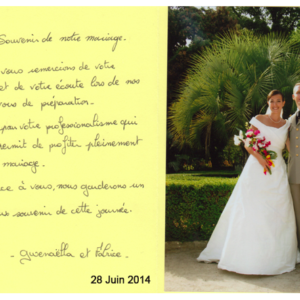 Souvenir de notre mariage.
vous remercions de votre
et de votre écoute lors de nos
vous de préparation.
pour votre professionnalisme qui
permit de profiter pleinement
mariage.
ce à vous, nous garderons un
souvenir de cette journée.
- Gwenaëlla et Fabrice -
28 Juin 2014